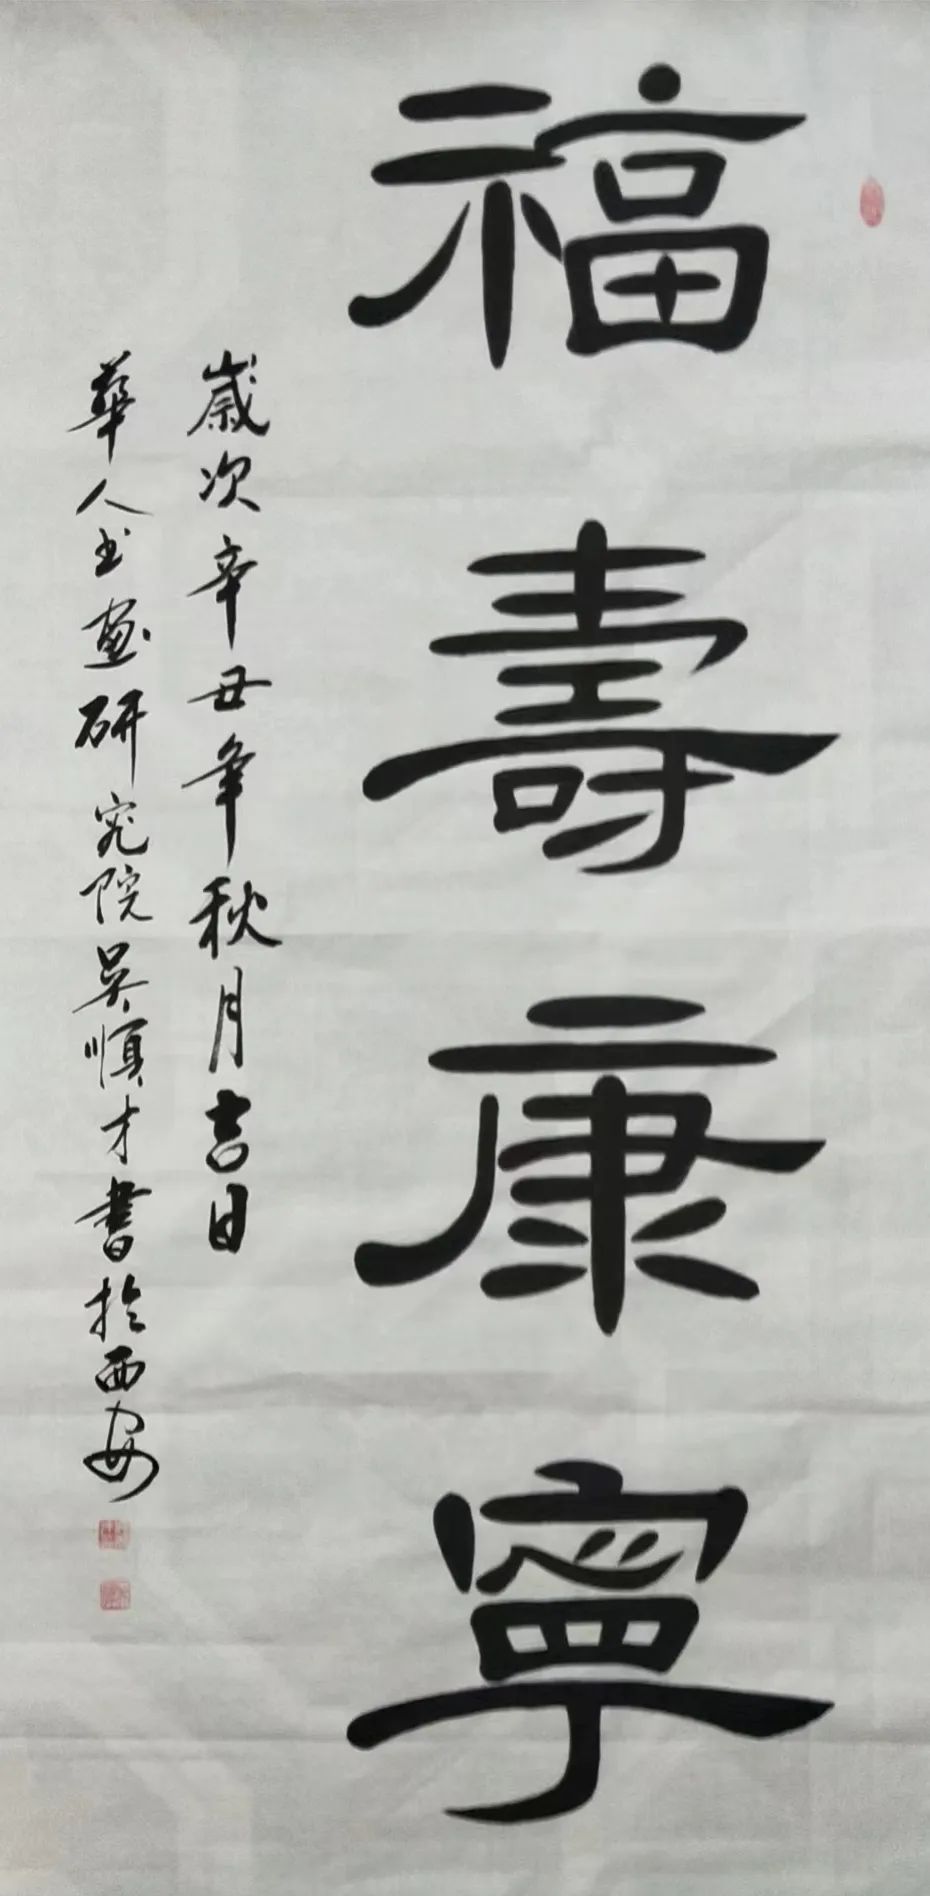 福壽康寧
歲次辛丑年秋月吉日
華人书画研究院吴順才書於西安